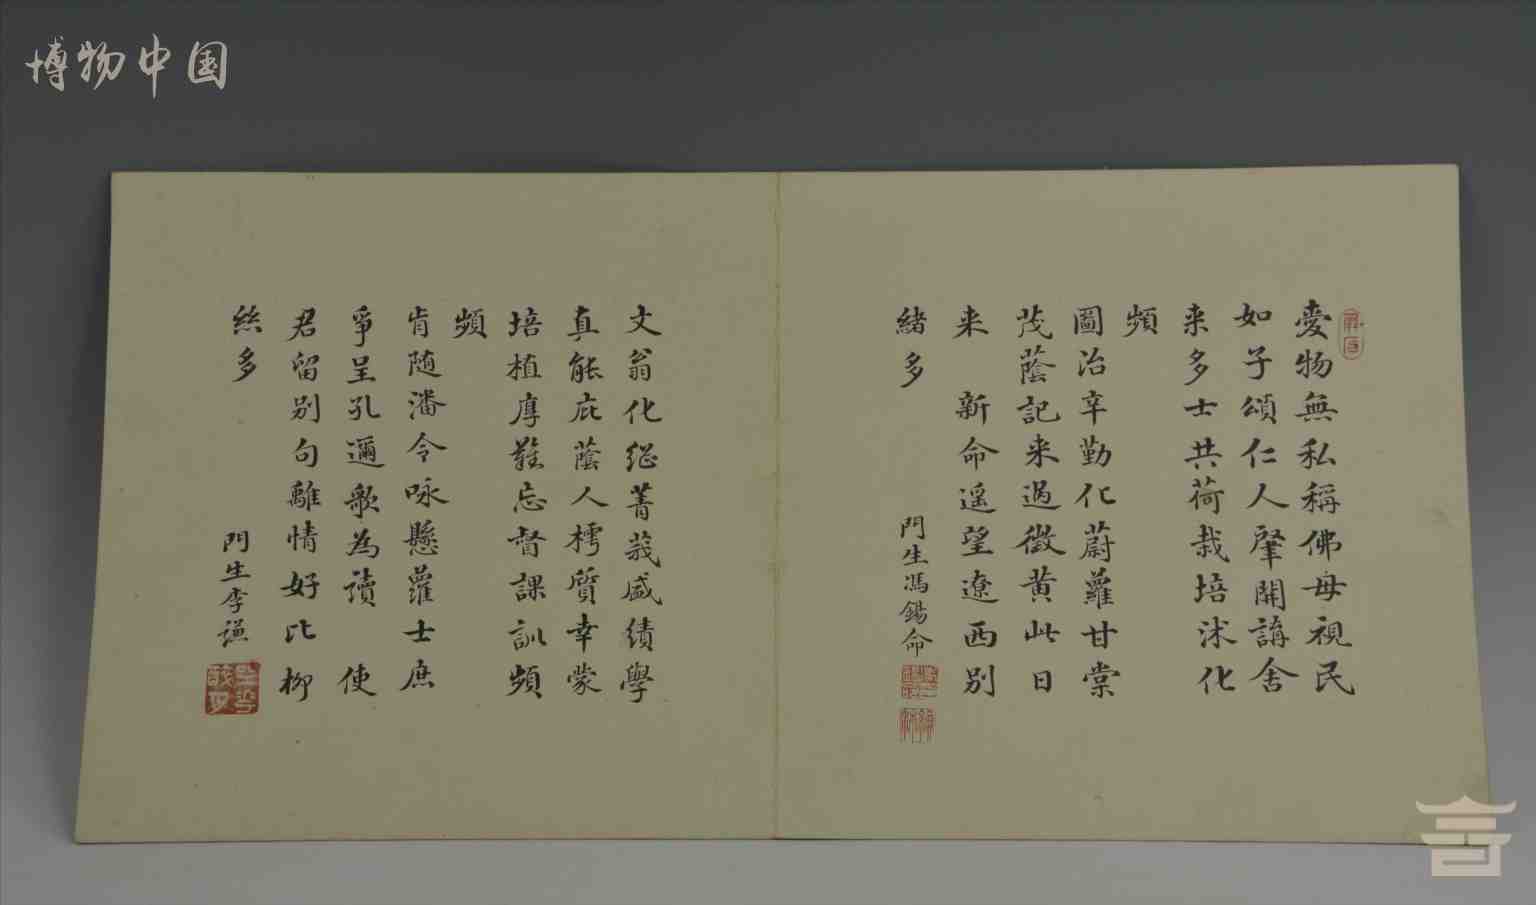 博物中国
愛物無私稱佛母視民
如子頌仁人肇開講舍
来多士共荷栽培沭化
頻
圖治辛勤化蔚蘿甘棠
茂蔭記来過徵黄此日
来 新命遥望遼西別
緒多
門生馮錫命
文翁化縚菁莪盛績學
真能庇蔭人樗質幸蒙
培植厚難忘督課訓頻
頻
肯随潘令咏懸蘿士庶
爭呈孔邇歌為讀 使
君留別句離情好比柳
絲多
門生李謙